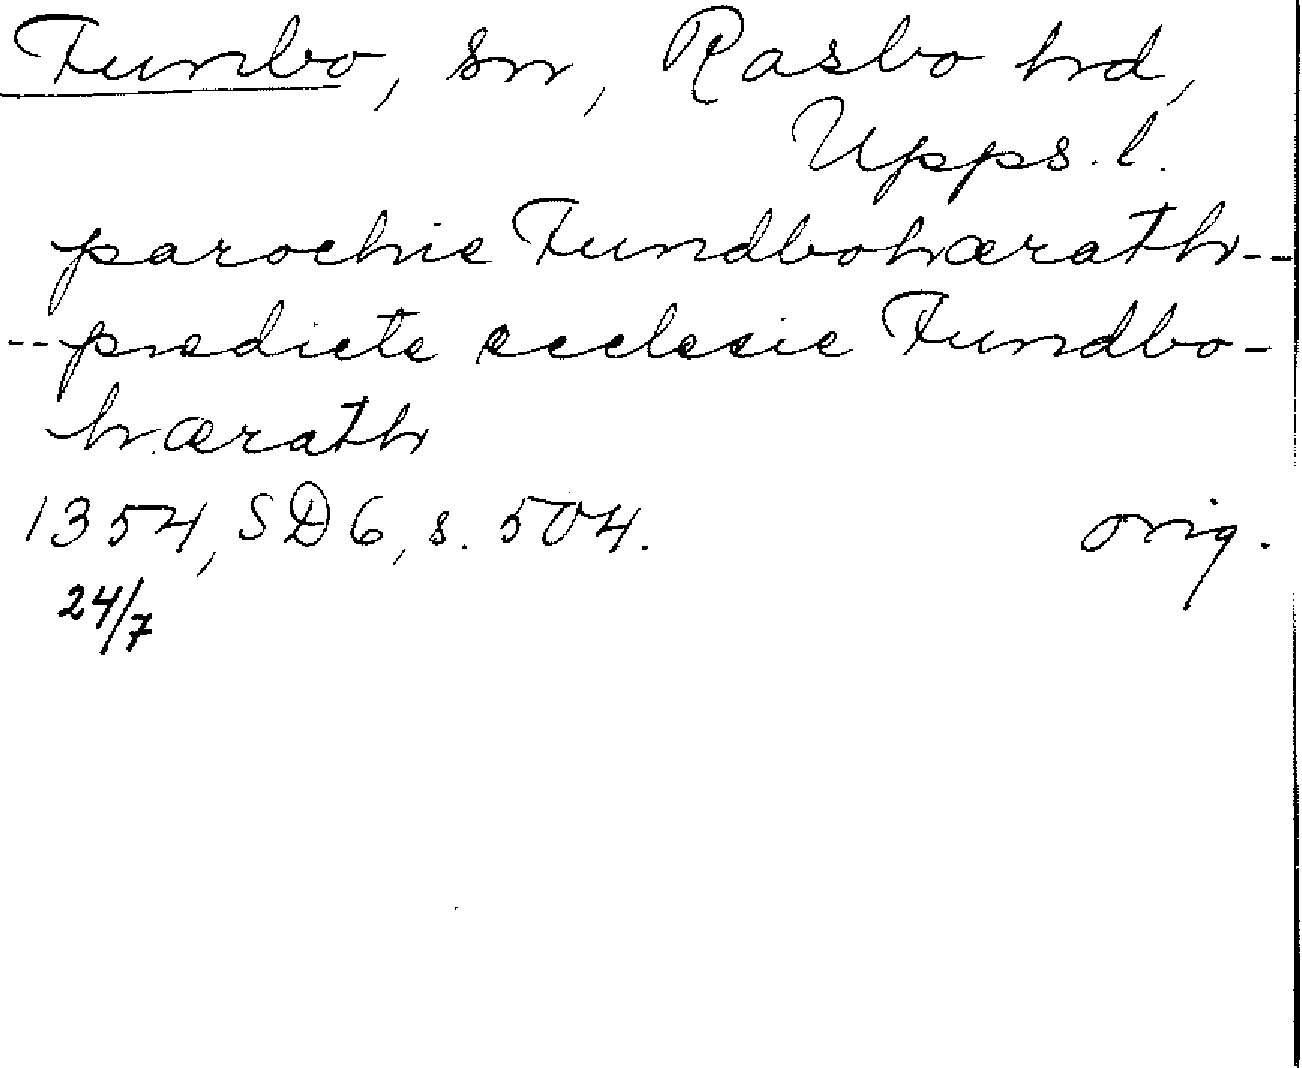 Funbo, sn, Rasbo hd,
Upps. l.
parochie Fundbohærath--
--predicte ecclesie Fundbo-
hærath
1354, SD6, s. 504. orig.
24/7